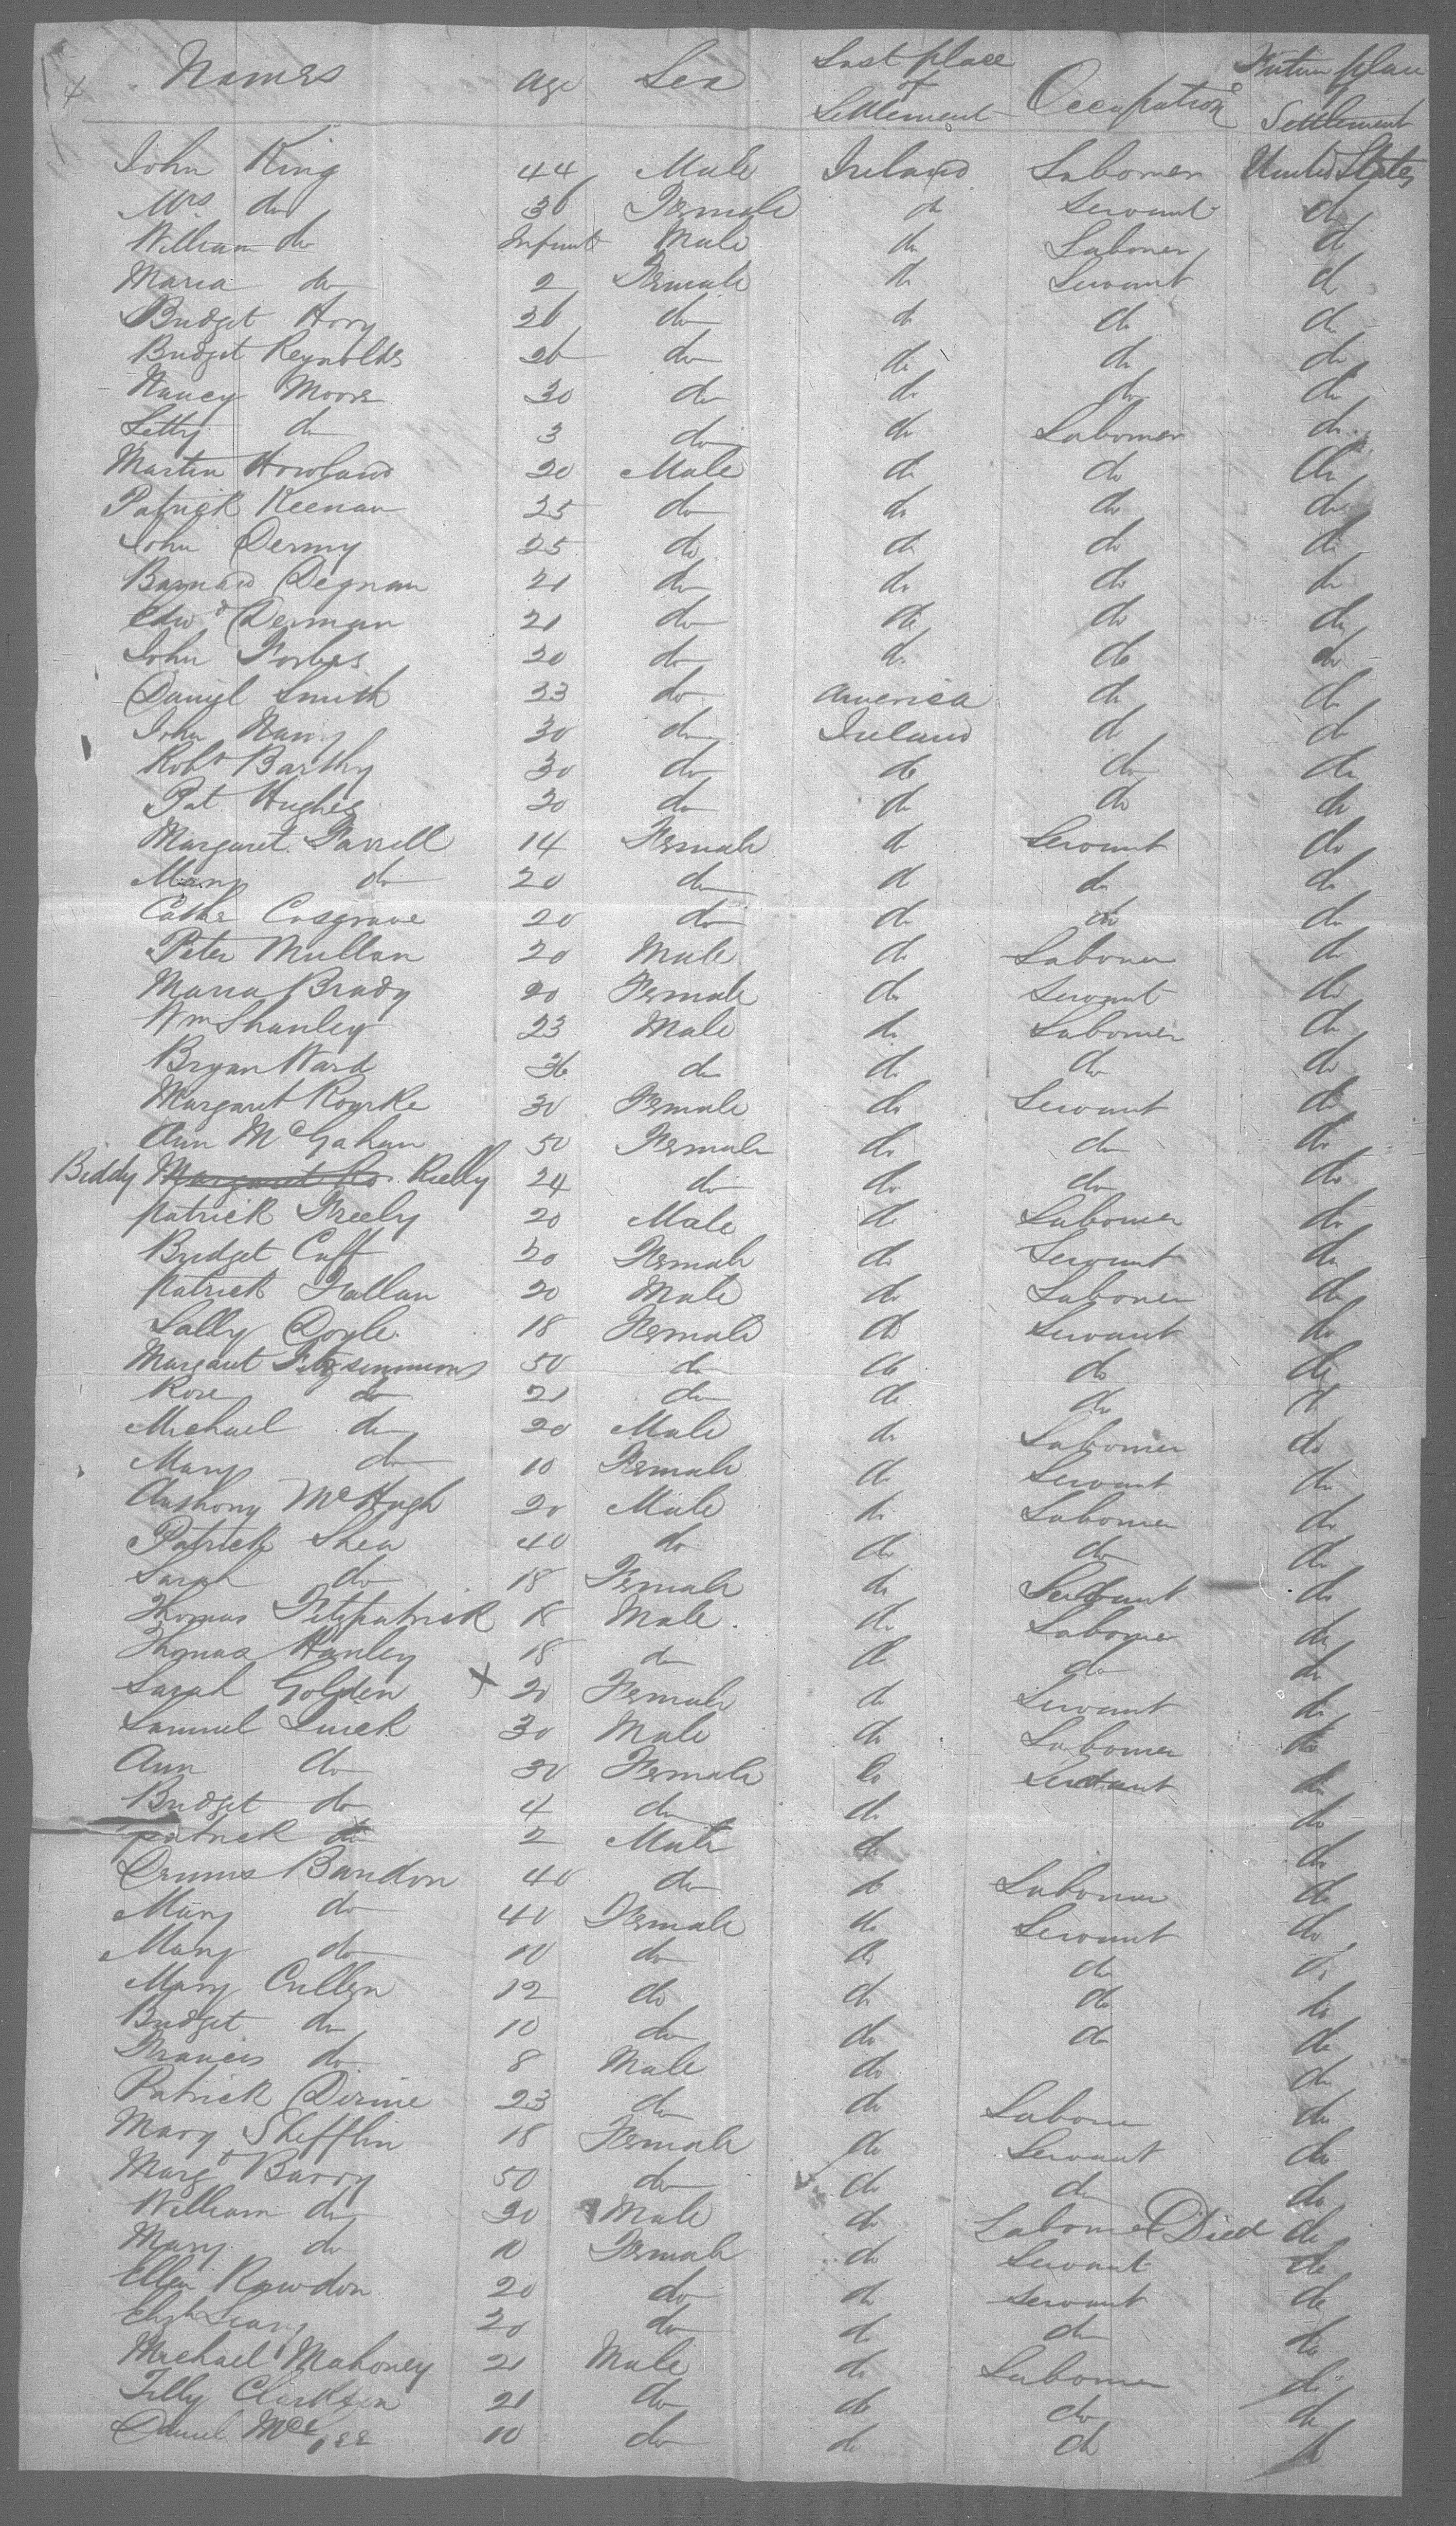 Names age Sex Last place of Settlement Occupation Future place Settlement
John King 44 Male Ireland Labourer United States
Mrs do 36 Female do Servant do
William do Infant Male do Labourer do
Maria do 2 Female do Servant do
Bridget 26 do do do do
Bridget Reynolds 26 do do do do
Nancy Moore 30 do do do do
Letty do 3 do do Labourer do
Martin Howland 20 Male do do do
Patrick Keenan 25 do do do do
John Dermy 25 do do do do
Barnard Degnan 21 do do do do
Edwd Dernan 21 do do do do
John Forbes 20 do do do do
Daniel Smith 23 do America do do
John 30 do Ireland do do
Robt Barthy 30 do do do do
Pat Hughes 20 do do do do
Margaret Farrell 14 Female do Servant do
Mary do 20 do do do do
Cathe Cosgrave 20 do do do do
Peter Mullan 20 Male do Labourer do
Maria Brady 20 Female do Servant do
Wm Shanley 23 Male do Labourer do
Bryan Ward 36 do do do do
Margaret Rourke 30 Female do Servant do
Ann McGahan 50 Female do do do
Biddy Margaret do Rielly 24 do do do do
Patrick Freely 20 Male do Labourer do
Bridget Cuff 20 Female do Servant do
Patrick Fallan 20 Male do Labourer do
Sally Doyle 18 Female do Servant do
Margaret Fitzsimmons 50 do do do do
Rose do 21 do do do do
Michael do 20 Male do Labourer do
Mary do 10 Female do Servant do
Anthony McHugh 20 Male do Labourer do
Patrick Shea 40 do do do do
Sarah do 18 Female do Servant do
Thomas Fitzpatrick 18 Male do Labourer do
Thomas Hanley 18 do do do do
Sarah Golden x 20 Female do Servant do
Samuel Luick 30 Male do Labourer do
Ann do 30 Female do Servant do
Bridget do 4 do do do
Patrick do 2 Male do do
Dennis Bandon 40 do do Labourer do
Mary do 40 Female do Servant do
Mary do 10 do do do do
Mary Cullen 12 do do do do
Bridget do 10 do do do do
Francis do 8 Male do do
Patrick Dirine 23 do do Labourer do
Mary Shefflin 18 Female do Servant do
Margt Barry 50 do do do do
William do 20 Male do Labourer Died do
Mary do 10 Female do Servant do
Ellen Rawdon 20 do do Servant do
Elizh 20 do do do do
Michael Mahoney 21 Male do Labourer do
Tilly Clarkson 21 do do do do
Daniel 10 do do do do